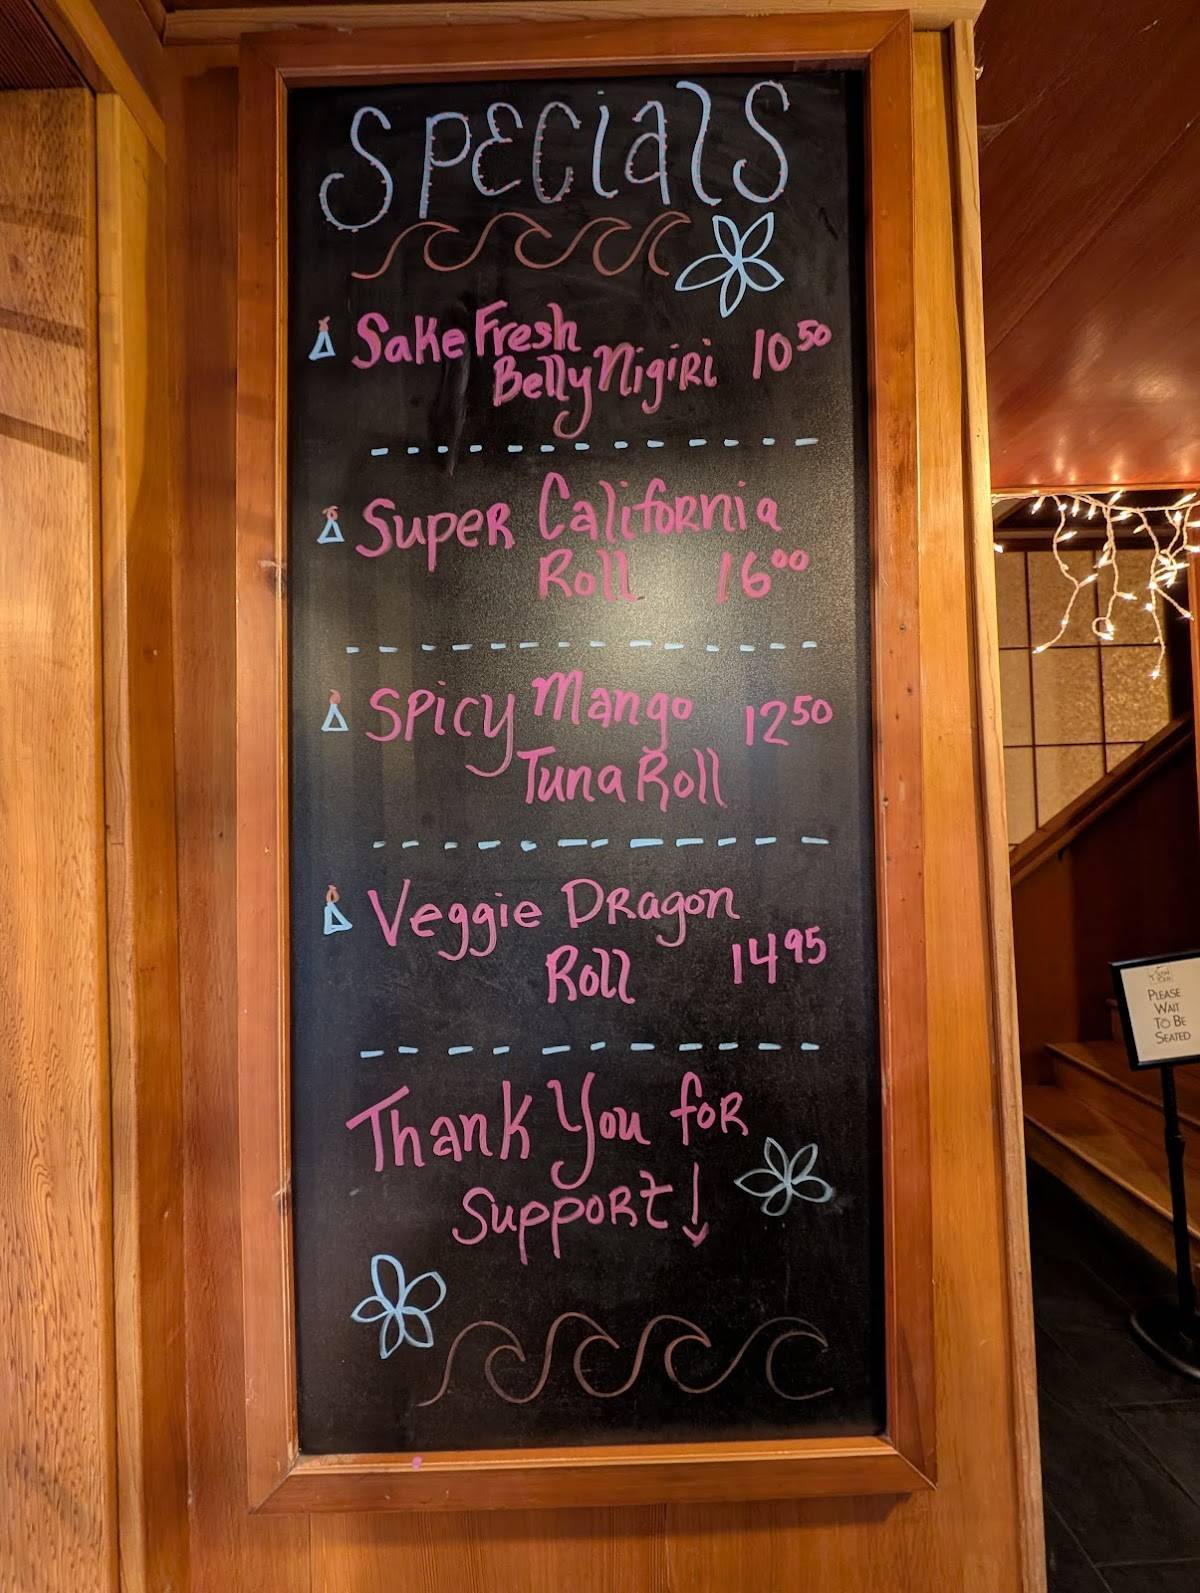 Specials
Sake Fresh
Belly Nigiri 10 50
Super California
Roll 16 00
Spicy Mango 12 50
Tuna Roll
Veggie Dragon
Roll 14 95
Thank You for
Support!
PLEASE
WAIT
TO BE
SEATED